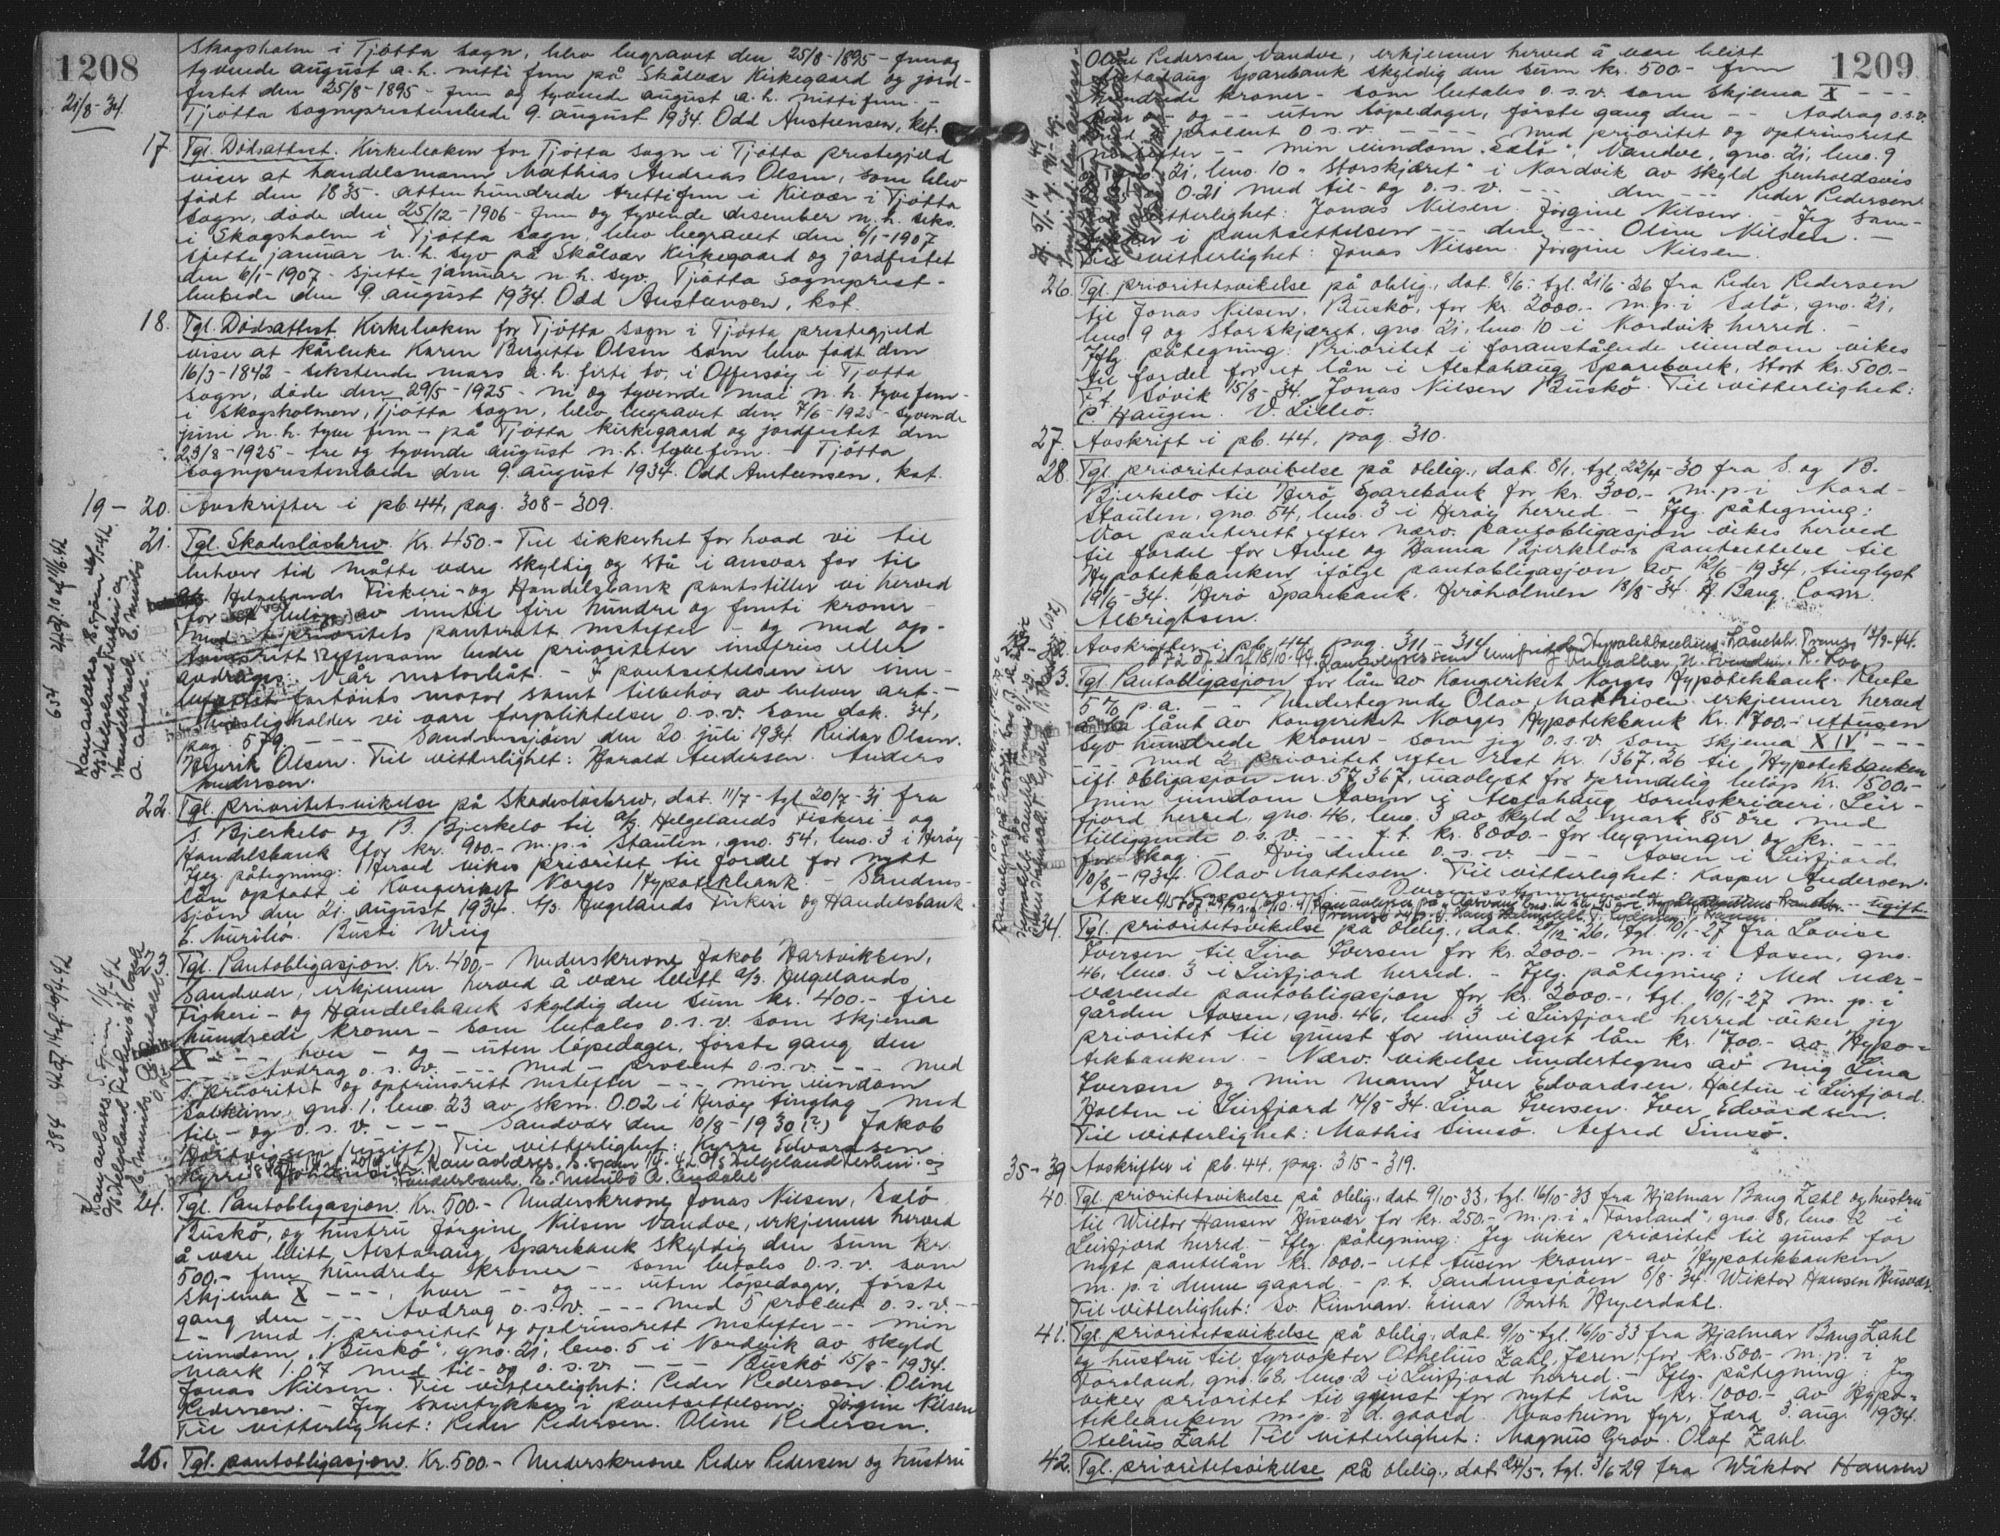 1208
21/8-34.
Skogsholm i Tjøtta sogn, blev begravet den 25/8-1895 - fem og
tyvende august a.h. nitti fem på Skålvær Kirkegaard og jord-
festet den 25/8-1895 - fem og tyvende august a.h. nittifem. -
Tjøtta sogneprestembede 9. august 1934. Odd Austensen, kst.
17. Tgl. Dødsattest. Kirkeboken for Tjøtta sogn i Tjøtta prestegjeld
viser at handelsmann Mathias Andreas Olsen, som blev
født den 1835 - atten hundrede trettifem i Kilvær i Tjøtta
sogn, døde den 25/12-1906 - fem og tyvende desember n.h. seks.
i Skogsholm i Tjøtta sogn, blev begravet den 6/1-1907
sjette januar n.h. syv på Skålvær Kirkegaard og jordfestet
den 6/1-1907 - sjette januar n.h. syv. Tjøtta sogneprest-
embede den 9. august 1934. Odd Austensen, kst.
18. Tgl. Dødsattest. Kirkeboken for Tjøtta sogn i Tjøtta prestegjeld
viser at kårenke Karen Bergette Olsen som blev født den
16/3-1842 - sekstende mars a.h. førti to, i Offersøy i Tjøtta
sogn, døde den 29/5-1925 - ni og tyvende mai n.h. tyvefem -
i Skogsholmen, Tjøtta sogn, blev begravet den 7/6-1925 - syvende
juni n.h. tyve fem - på Tjøtta kirkegaard og jordfestet den
23/8-1925 - tre og tyvende august n.h. tyvefem. - Tjøtta
sogneprestembede den 9. august 1934. Odd Austensen, kst.
19 - 20. Avskrifter i pb. 44, pag. 308-309.
21. Tgl. Skadesløsbrev. Kr. 450.- Til sikkerhet for hvad vi til
enhver tid måtte være skyldig og stå i ansvar for til
A/S Helgelands Fiskeri- og Handelsbank pantstiller vi herved
for et beløp av inntil fire hundre og femti kroner -
med 1 prioritets panterett nestefter - og med op-
trinsrett eftersom bedre prioriteter innfries eller
avdrages. Vår motorbåt. - I pantsettelsen er inn-
befattet fartøiets motor samt tilbehør av enhver art. -
holder vi våre forpliktelser o.s.v. som dok. 34,
pag. 579 - - - Sandnessjøen den 20. juli 1934. Reidar Olsen.
Henrik Olsen. Til vitterlighet: Harald Andersen. Anders
Andersen.
22. Tgl. prioritetsvikelse på Skadesløsbrev, dat. 11/7 - tgl. 20/7-31 fra
S. Bjerkelo og B. Bjerkelo til A/S Helgelands Fiskeri- og
Handelsbank for kr. 900.- m.p. i Staulen, gno. 54, bno. 3 i Herøy
Iflg. påtegning: Herved vikes prioritet til fordel for nytt
lån optatt i Kongeriket Norges Hypotekbank. - Sandnes-
sjøen den 21. august 1934. A/S Helgelands Fiskeri og Handelsbank
Busti Wiig
23. Tgl. Pantobligasjon. Kr. 400.- Underskrevne Jakob Hartviksen,
Sandvær, erkjenner herved å være blitt A/S Helgelands
Fiskeri- og Handelsbank skyldig den sum kr. 400.- fire
hundrede kroner - som betales o.s.v. som skjema
X - - - hver - og - uten løpedager, første gang den
- - - Avdrag o.s.v. - - - med - procent o.s.v. - - - med
1. prioritet og optrinsrett nestefter - - - min eiendom
gno. 1, bno. 23 av skm. 0.02 i Herøy tinglag med
til- og o.s.v. - - - Sandvær den 10/8-1930(?) Jakob
Hartvigsen (ugift) Til vitterlighet: Kyrre Edvardsen
24. Tgl. Pantobligasjon. Kr. 500.- Underskrevne Jonas Nilsen,
Buskø, og hustru Jørgine Nilsen Vandve, erkjenner herved
å være blitt Alstahaug Sparebank skyldig den sum kr.
500.- fem hundrede kroner - som betales o.s.v. som
skjema X - - -, hver - og - - - uten løpedager, første
gang den - - - Avdrag o.s.v. - - - med 5 procent o.s.v. - -
- - med 1. prioritet og optrinsrett nestefter - - min
eiendom "Buskø", gno. 21, bno. 5 i Nordvik av skyld
mark 1.07 med til- og o.s.v. - - - Buskø 15/8-1934.
Jonas Nilsen. Til vitterlighet: Peder Pedersen. Oline
Pedersen. - Jeg samtykker i pantsettelsen. Jørgine Nilsen
Til vitterlighet: Peder Pedersen. Oline Pedersen.
25. Tgl. pantobligasjon. Kr. 500.- Underskrevne Peder Pedersen og hustru
1209
Oline Pedersen Vandve, erkjenner herved å være blitt
Alstahaug Sparebank skyldig den sum kr. 500.- fem
hundrede kroner - som betales o.s.v. som skjema X - - -
hver - og - - uten løpedager, første gang den - - Avdrag o.s.v.
med procent o.s.v. - - - - med prioritet og optrinsrett
nestefter - - min eiendom "Sølø", Vandve, gno. 21, bno. 9
og gno. 21, bno. 10 "Storskjæret" i Nordvik av skyld henholdsvis
0.21 med til- og o.s.v. - - - den - - - Peder Pedersen
Til vitterlighet: Jonas Nilsen. Jørgine Nilsen. - Jeg sam-
tykker i pantsettelsen - - - den - - Oline Nilsen. -
Til vitterlighet: Jonas Nilsen. Jørgine Nilsen.
26. Tgl. prioritetsvikelse på oblig., dat. 8/6 - tgl. 21/6-26 fra Peder Pedersen
til Jonas Nilsen, Buskø, for kr. 2000.- m.p. i Sølø, gno. 21,
bno. 9 og Storskjæret, gno. 21, bno. 10 i Nordvik herred. -
Iflg. påtegning: Prioritet i foranstående eiendom vikes
til fordel for et lån i Alstahaug Sparebank, stort kr. 500.-
P.t. Søvik 15/8-34. Jonas Nilsen Buskø. Til vitterlighet:
C. Haugen. V. Lilleø.
27. Avskrift i pb. 44, pag. 310.
28. Tgl. prioritetsvikelse på oblig., dat. 8/1, tgl. 22/4-30 fra S. og B.
Bjerkelo til Herø Sparebank for kr. 300.- m.p. i Nord-
staulen, gno. 54, bno. 3 i Herøy herred. - Iflg. påtegning:
Vor panterett efter nærv. pantobligasjon vikes herved
til fordel for Anne og Hanna Bjerkelo's pantsettelse til
Hypotekbanken ifølge pantobligasjon av 12/6-1934, tinglyst
19/6-34. Herø Sparebank. Herøholmen 18/8-34. H. Bang. Conr.
Albrigtsen.
Avskrifter i pb. 44, pag. 311-314
Tgl. Pantobligasjon for lån av Kongeriket Norges Hypotekbank. Rente
5 % p.a. - - Undertegnede Olav Mathisen erkjenner herved
å ha lånt av Kongeriket Norges Hypotekbank kr. 1700.- ettusen
syv hundrede kroner - som jeg o.s.v. som skjema XIV - - -
- - - med 2 prioritet efter rest kr. 1367.26 til Hypotekbanken
ifl. obligasjon nr. 57367, uavlyst for oprindelig beløp kr. 1500.-
min eiendom Aasen i Alstahaug sorenskriveri, Leir-
fjord herred, gno. 46, bno. 3 av skyld 2 mark 85 øre med
tilliggende o.s.v. - - - f.t. kr. 8000.- for bygninger og kr. - - -
for skog. - Hvis denne o.s.v. - - - Aasen i Leirfjord
10/8-1934. Olav Mathisen. Til vitterlighet: Kasper Andersen.
34. Tgl. prioritetsvikelse på oblig., dat. 20/12-26, tgl. 10/1-27 fra Lovise
Iversen til Lina Iversen for kr. 2000.- m.p. i Aasen, gno.
46, bno. 3 i Leirfjord herred. - Iflg. påtegning: Med nær-
værende pantobligasjon for kr. 2000.-, tgl. 10/1-27 m.p. i
gården Aasen, gno. 46, bno. 3 i Leirfjord herred viker jeg
prioritet til gunst for innvilget lån kr. 1700.- av Hypo-
tekbanken. - Nærv. vikelse undertegnes av mig Lina
Iversen og min mann Iver Edvardsen, Holten i Leirfjord.
Holten i Leirfjord 14/8-34. Lina Iversen. Iver Edvardsen.
Til vitterlighet: Mathis Simsø. Alfred Simsø.
35-39 Avskrifter i pb. 44, pag. 315-319.
40. Tgl. prioritetsvikelse på oblig., dat. 9/10-33, tgl. 16/10-33 fra Hjalmar Bang Zahl og hustru
til Wiktor Hansen Husvær for kr. 250.- m.p. i "Forsland", gno. 68, bno. 2 i
Leirfjord herred. - Iflg. påtegning: Jeg viker prioritet til gunst for
nytt pantelån kr. 1000.- ett tusen kroner - av Hypotekbanken
m.p. i denne gaard. - p.t. Sandnessjøen 8/8-34. Wiktor Hansen Husvær.
Til vitterlighet: Sv. Rinnan. Einar Barth Heyerdahl.
41. Tgl. prioritetsvikelse på oblig., dat. 9/10 - tgl. 16/10-33 fra Hjalmar Bang Zahl
og hustru til fyrvokter Othelius Zahl, Færen, for kr. 500.- m.p. i
Forsland, gno. 68, bno. 2 i Leirfjord herred. - Iflg. påtegning: Jeg
viker prioritet til gunst for nytt lån kr. 1000.- av Hypo-
tekbanken m.p. i d. gaard. fyr, 3. aug. 1934.
Otelius Zahl Til vitterlighet: Magnus Grov. Olaf Zahl.
42. Tgl. prioritetsvikelse på oblig., dat. 24/5, tgl. 3/6-29 fra Wiktor Hansen